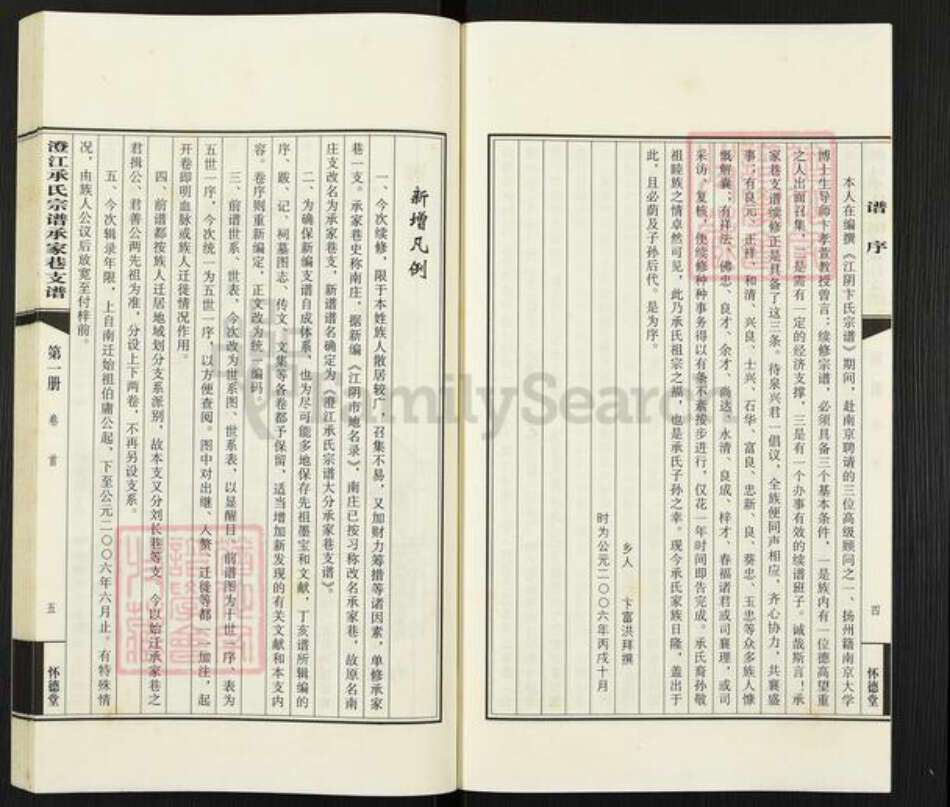 谱序
本人在编撰《江阴卞氏宗谱》期间，赴南京聘请的三位高级顾问之一、扬州籍南京大学
博士生导师卞孝萱教授曾言：续修宗谱，必须具备三个基本条件，一是族内有一位德高望重
之人出面召集，二是需有一定的经济支撑，三是有一个办事有效的续谱班子。诚哉斯言！承
家巷支谱续修正是具备了这三条。待泉兴君一倡议，全族便同声相应，齐心协力，共襄盛
事；有良元、正祥、和清、兴良、士兴、石华、富良、忠新、良、葵忠、玉忠等众多族人慷
慨解囊；有祥法、佛忠、良才、余才、尚达、永清、良成、梓才、春福诸君或司襄理，或司
采访、复核，使续修种种事务得以有条不紊按步进行，仅花一年时间即告完成。承氏裔孙敬
祖睦族之情卓然可见，此乃承氏祖宗之福，也是承氏子孙之幸。现今承氏家族日隆，盖出于
此，且必荫及子孙后代。是为序。
乡人 卞富洪拜撰
时为公元二〇〇六年丙戌十月
四
怀德堂
新增凡例
一、今次续修，限于本姓族人散居较广，召集不易，又加财力筹措等诸因素，单修承家
巷一支。承家巷史称南庄，据新编《江阴市地名录》，南庄已按习称改名承家巷，故原名南
庄支改名为承家巷支，新谱谱名确定为《澄江承氏宗谱大分承家巷支谱》。
二、为确保新编支谱自成体系，也为尽可能多地保存先祖墨宝和文献，丁亥谱所辑编的
序、跋、记、祠墓图志、传文、文集等各卷都予保留，适当增加新发现的有关文献和本支内
容。卷序则重新编定，正文改为统一编码。
三、前谱世系、世表，今次改为世系图、世系表，以显醒目。前谱图为十世一序、表为
五世一序，今次统一为五世一序，以方便查阅。图中对出继、入赘、迁徙等都一一加注，起
开卷即明血脉或族人迁徙情况作用。
四、前谱都按族人迁居地域划分支系派别，故本支又分刘长巷等支，今以始迁承家巷之
君揖公、君善公两先祖为准，分设上下两卷，不再另设支系。
五、今次辑录年限，上自南迁始祖伯庸公起，下至公元二〇〇六年六月止。有特殊情
况，由族人公议后放宽至付梓前。
澄江承氏宗谱承家巷支谱
第一册
卷首
五
怀德堂
FamilySearch